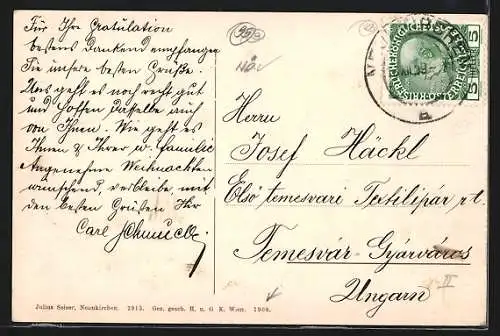 Für Ihre Gratulation
bestens Dankend empfangen
Sie unsere besten Grüße.
Uns geht es noch recht gut
und hoffen dasselbe auch
von Ihnen. Wie geht es
Ihnen & Ihrer w. Familie
Angenehme Weihnachten
wünschend, verbleibe mit
den besten Grüßen Ihr
Carl
Herrn
Josef Häckl
Első temesvari Textilipár r.t.
Temesvár-Gyárváros
II
Ungarn
5 5
Julius Seiser, Neunkirchen. 2913. Ges. gesch. H. u. G. K. Wien. 1908.